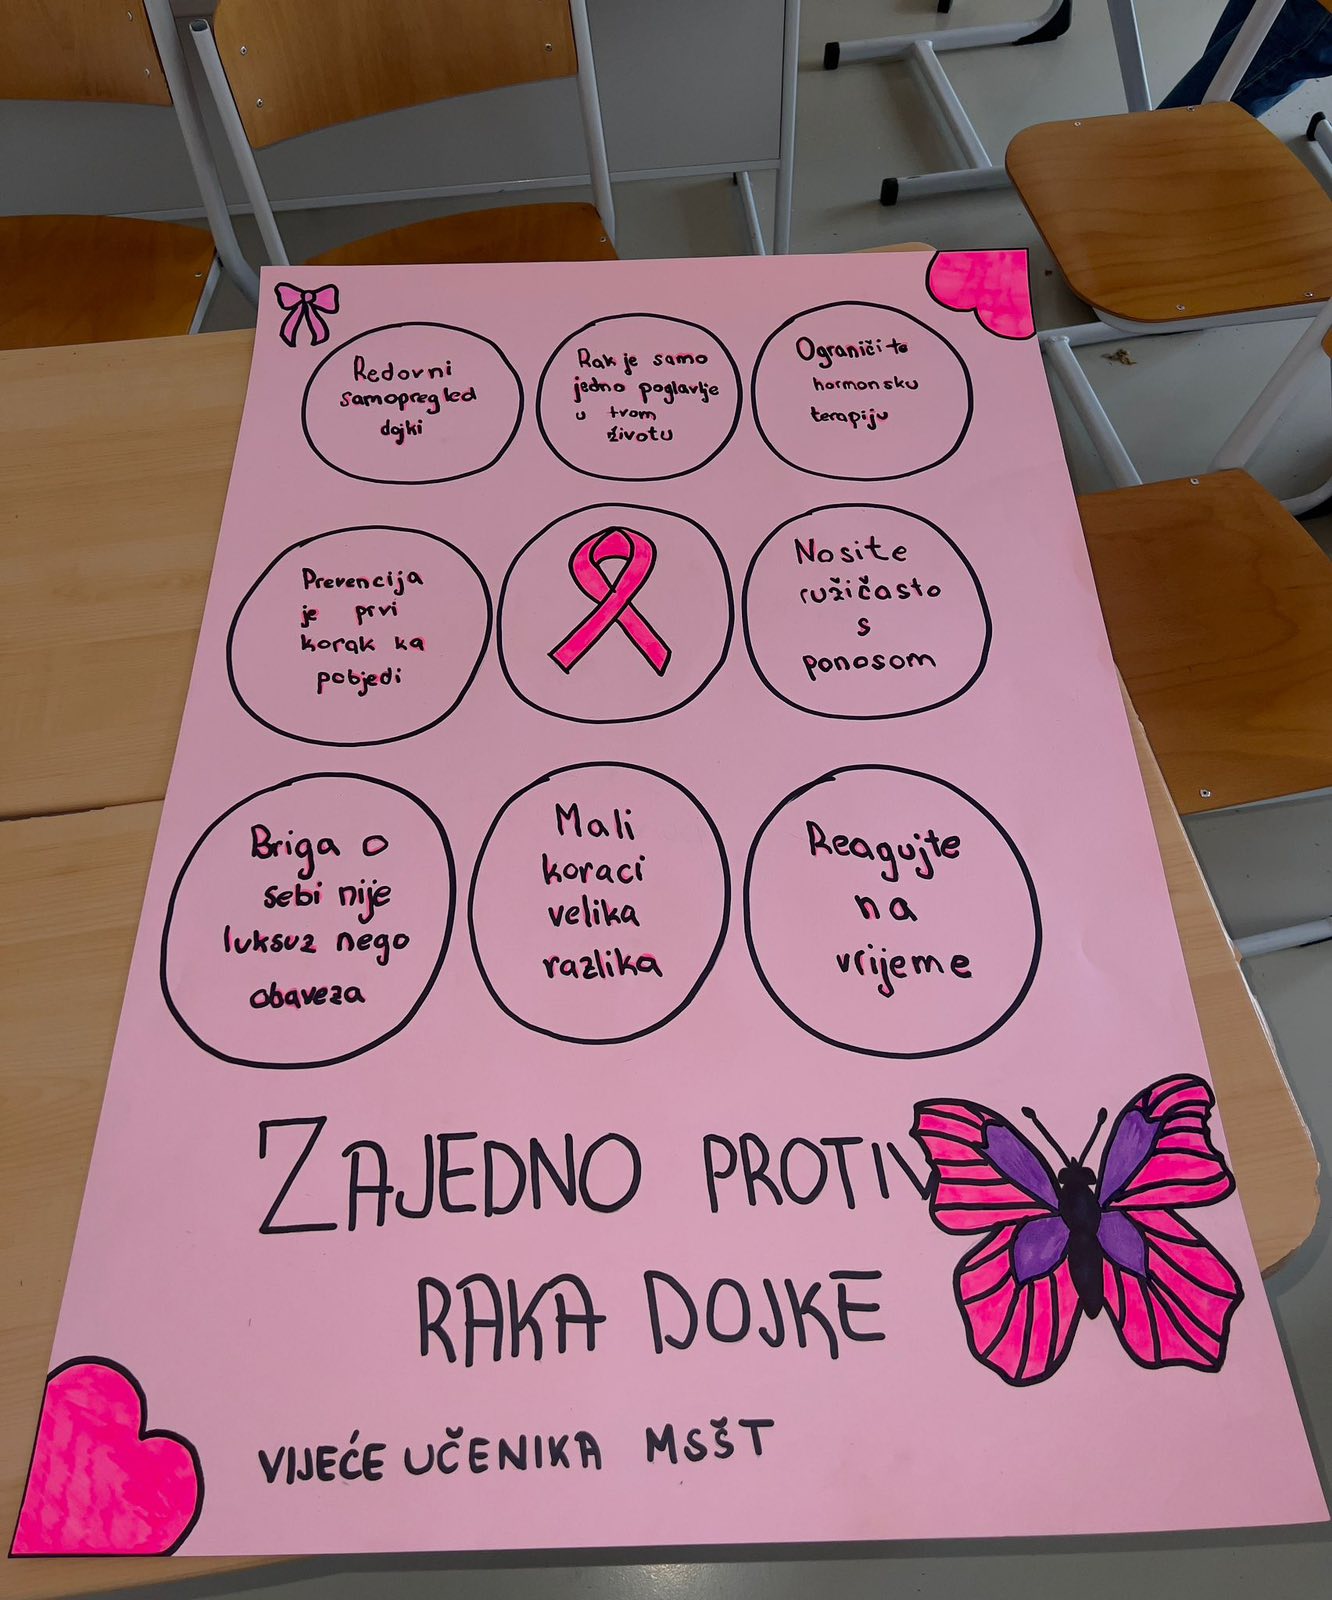 Redovni
samopregled
dojki
Rak je samo
jedno poglavlje
u tvom
životu
Ograničite
hormonsku
terapiju
Prevencija
je prvi
korak ka
pobjedi
Nosite
ružičasto
s
ponosom
Briga o
sebi nije
luksuz nego
obaveza
Mali
koraci
velika
razlika
Reagujte
na
vrijeme
ZAJEDNO PROTIV
RAKA DOJKE
VIJEĆE UČENIKA MSŠT